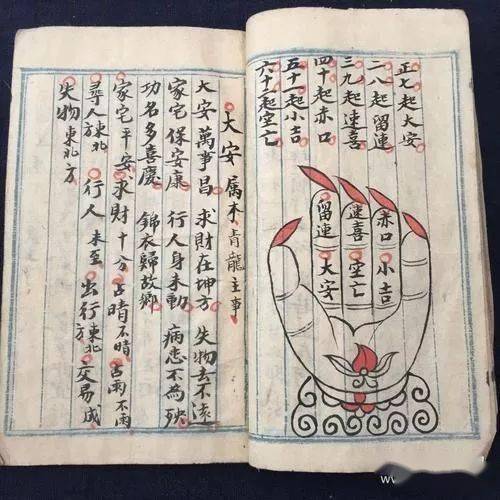 正七起大安
二八起留連
三九起速喜
四十起赤口
五十一起小吉
六十二起空亡
留連 速喜 赤口
大安 空亡 小吉
大安 属木青龍主事
大安萬事昌 求財在坤方 失物去不遠
家宅保安康 行人身未動 病患不為殃
功名多喜慶 錦衣歸故鄉
家宅平安求財十分占晴不晴占雨不雨
尋人東北 行人未至 出行東北方 交易成
失物東北方